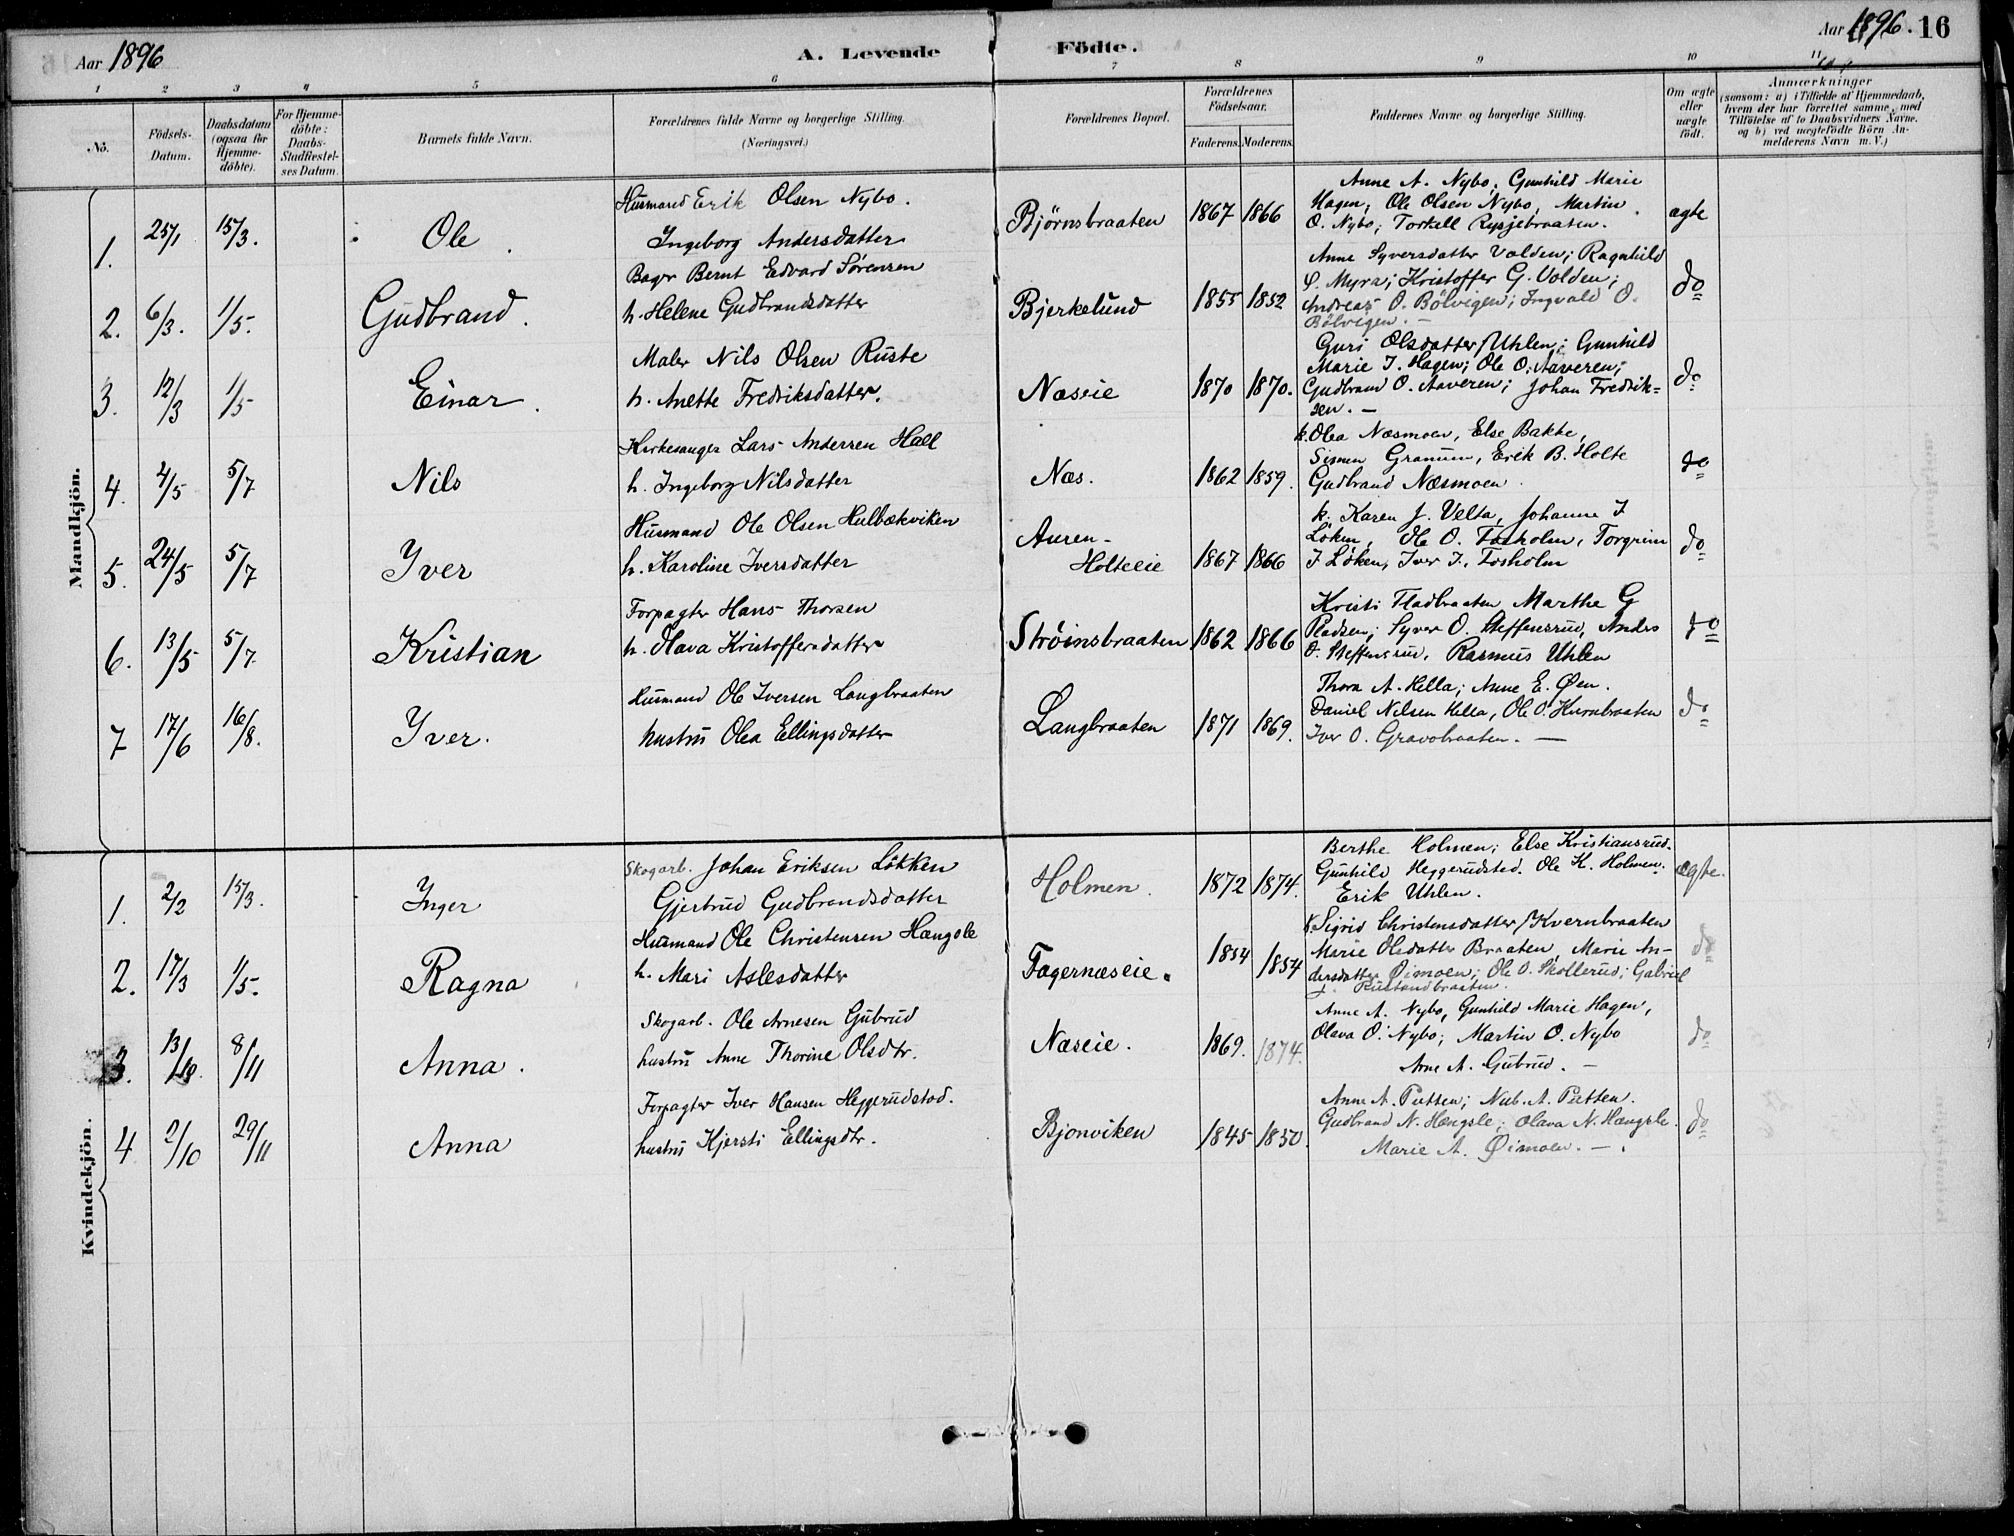 Aar 1896
A. Levende Födte.
Aar 1896. 16
1 2 3 4 5 6 7 8 9 10 11
No.
Födsels-Datum.
Daabsdatum (ogsaa for Hjemme-döbte).
For Hjemme-döbte: Daabs-Stadfæstel-ses Datum.
Barnets fulde Navn.
Forældrenes fulde Navne og borgerlige Stilling. (Næringsvei.)
Forældrenes Bopæl.
Forældrenes Födselsaar.
Faderens. Moderens.
Faddernes Navne og borgerlige Stilling.
Om ægte eller uægte födt.
Anmærkninger
(saasom: a) i Tilfælde af Hjemmedaab, hvem der har forrettet samme, med Tilföielse af to Daabsvidners Navne. og b) ved uægtefödte Börn An-melderens Navn m. V.)
Mandkjön.
1. 25/1 15/3. Ole
Husmand Erik Olsen Nybo.
Ingeborg Andersdatter
Bjørnsbraaten 1867 1866
Anne A. Nybo, Gunhild Marie
Hagen; Ole Olsen Nybo, Martin
O. Nybo; Torkell Rypjebraaten.
ægte
2. 6/3. 1/5. Gudbrand.
Bager Bernt Edvard Sørensen
h. Helene Gudbrandsdatter
Bjerkelund 1855 1852
Anne Syversdatter Volden; Ragnhild
S. Myra; Kristoffer G. Volden;
Andreas O. Bölvigen; Ingvald O.
Bölvigen. —
do
3. 12/3 1/5 Einar.
Maler Nils Olsen Ruste
h. Anette Fredriksdatter.
Næseie 1870 1870.
Guri Olsdatter Uhlen; Gunhild
Marie J. Hagen; Ole O. Aaveren;
Gudbrand O. Aaveren; Johan Fredrik=
sen. —
do
4. 4/5 5/7 Nils
Kirkesanger Lars Andersen Hall
h. Ingeborg Nilsdatter
Næs. 1862 1859.
k. Olea Næsmoen, Else Bakke,
Simen Granum, Erik B. Holte
Gudbrand Næsmoen
do
5. 24/5 5/7 Yver
Husmand Ole Olsen Hulbækviken
h. Karoline Iversdatter
Auren-
Holteeie 1867 1866
k. Karen J. Velta, Johanne I
Löken, Ole O. Fosholm, Torgrim
I Løken, Iver I. Fosholm
do
6. 13/5 5/7. Kristian
Forpagter Hans Thorsen
h. Olava Kristoffersdatter
Strøinsbraaten 1862 1866
Kristi Fladbraaten Marthe G
Pladsen; Syver O. Steffensrud, Anders
O. Steffensrud, Rasmus Uhlen
do
7 17/6 16/8. Yver.
Husmand Ole Iversen Langbraaten
hustru Olea Ellingsdatter
Langbraaten 1871 1869.
Thora A. Hella; Anne E. Øen.
Daniel Nilsen Hella, Ole O. Kurnbraaten
Iver O. Gravobraaten. —
do
Kvindekjön.
1. 2/2 15/3. Inger
Skogarb. Johan Eriksen Løkken
Gjertrud Gudbrandsdatter
Holmen. 1872 1874.
Berthe Holmen; Else Kristiansrud.
Gunhild Heggerudstad. Ole K. Holmen.
Erik Uhlen.
ægte.
2. 17/3 1/5. Ragna
Husmand Ole Christensen Hængsle
h. Mari Aslesdatter
Fagernæseie. 1854 1854
k. Sigrid Christensdatter Kvernbraaten
Marie Olsdatter Braaten, Marie An-
dersdatter Øimoen; Ole O. Skollerud; Gabriel
Rustandbraaten.
do
3. 13/10. 8/11 Anna.
Skogarb. Ole Arnesen Gubrud
hustru Anne Thorine Olsdtr.
Næseie. 1869. 1874.
Anne A. Nybo, Gunhild Marie Hagen,
Olava O. Nybo; Martin O. Nybo
Arne A. Gubrud. —
do
4 2/10 29/11 Anna
Forpagter Iver Hansen Heggerudstad.
hustru Kjersti Ellingsdtr.
Bjonviken 1845 1850.
Anne A. Putten; Nub. A. Putten.
Gudbrand N. Hængsle; Olava N. Hængsle.
Marie A. Øimoen. — .
do